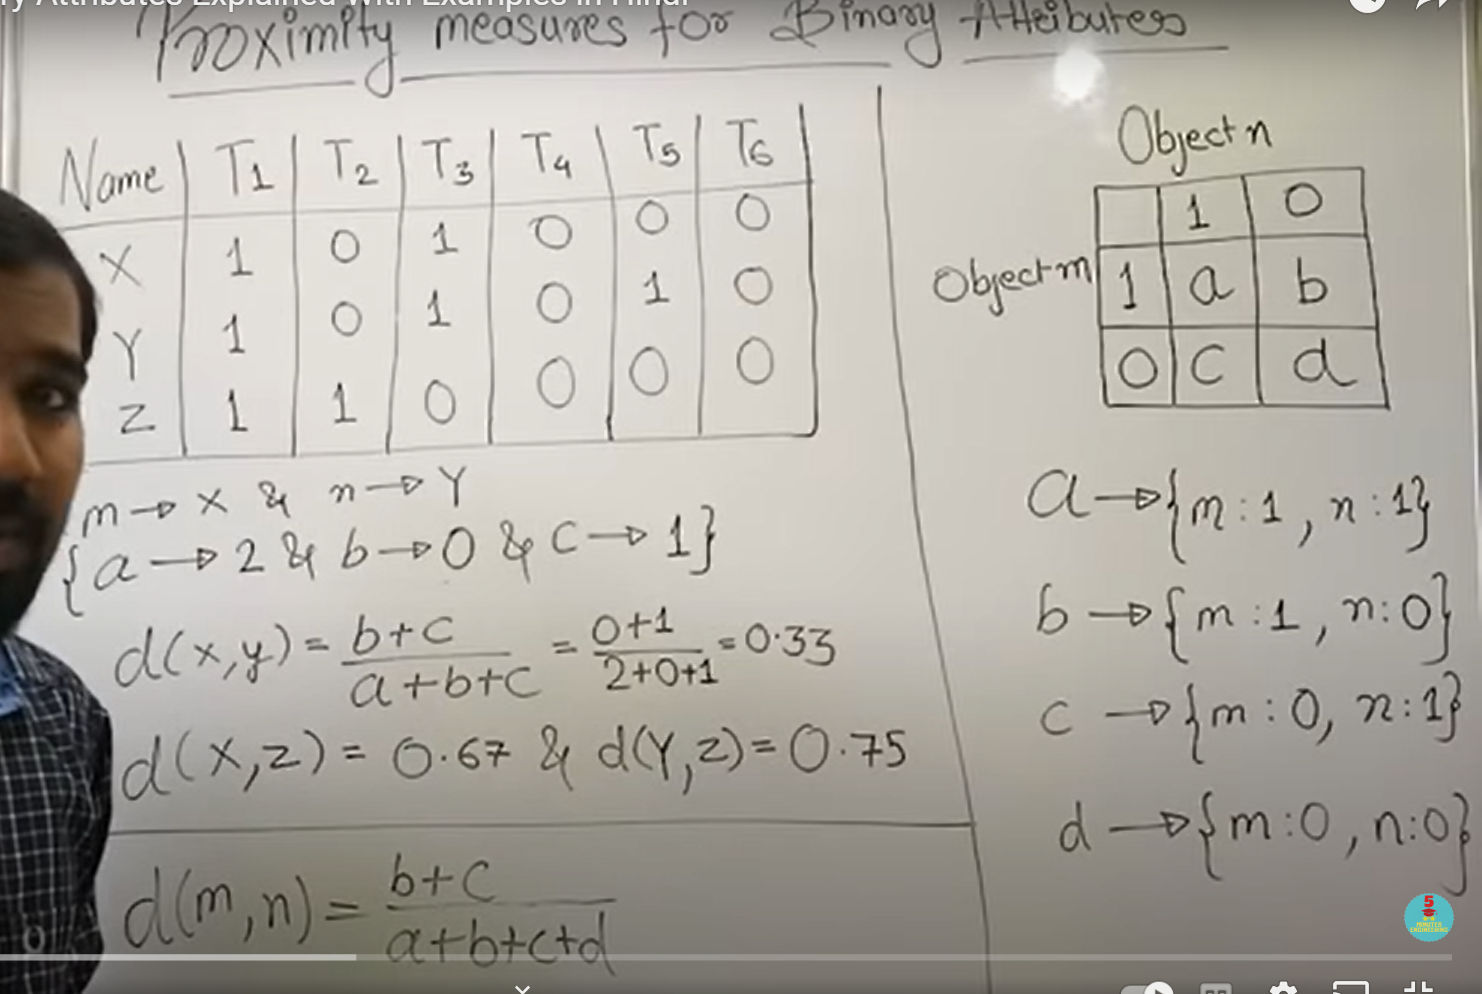 ry Attributes Explained with Examples in Hindi
Proximity measures for Binary Attributes
Name T1 T2 T3 T4 T5 T6
X 1 0 1 0 0 0
Y 1 0 1 0 1 0
Z 1 1 0 0 0 0
m → X & n → Y
{a → 2 & b → 0 & c → 1}
d(x,y) = b+c / a+b+c = 0+1 / 2+0+1 = 0.33
d(X,Z) = 0.67 & d(Y,Z) = 0.75
d(m,n) = b+c / a+b+c+d
Object n
1 0
Object m 1 a b
0 c d
a → {m:1, n:1}
b → {m:1, n:0}
c → {m:0, n:1}
d → {m:0, n:0}
5
MINUTES
ENGINEERING